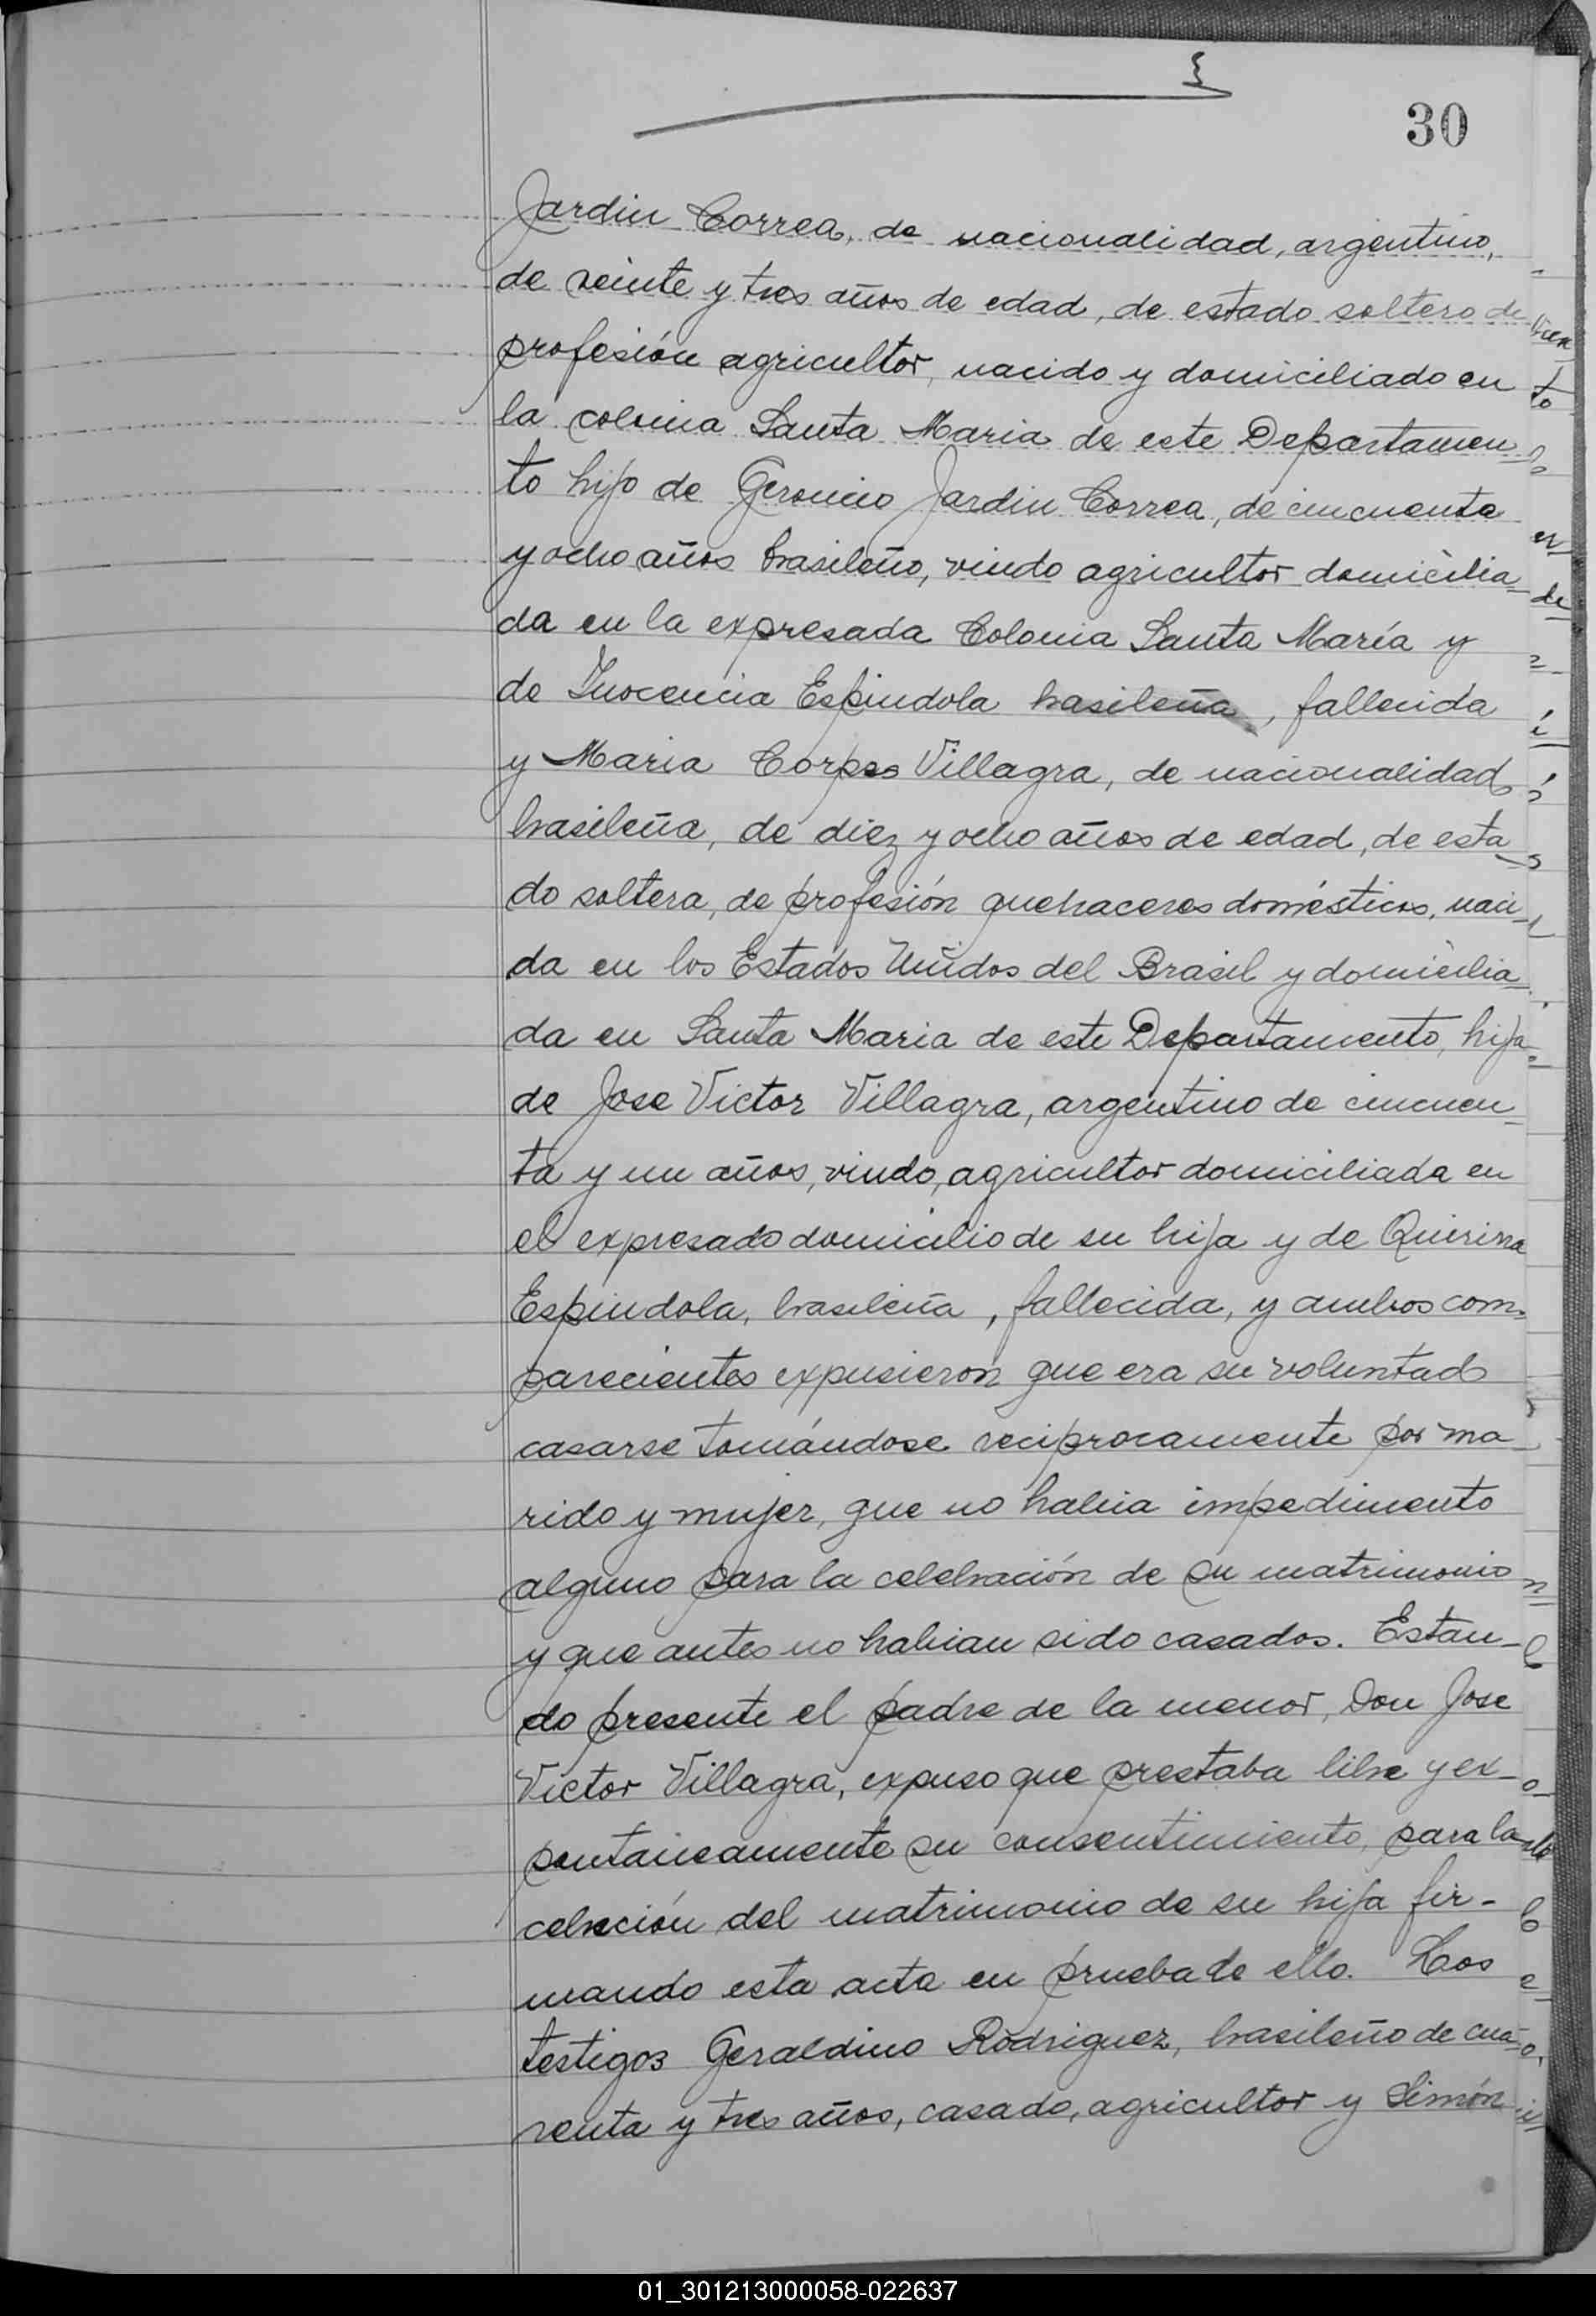 30
Jardin Correa, de nacionalidad, argentino,
de veinte y tres años de edad, de estado soltero de
profesión agricultor, nacido y domiciliado en
la colonia Santa Maria de este Departamen
to hijo de Geronimo Jardin Correa, de cincuenta
y ocho años brasileño, viudo agricultor domicilia
da en la expresada Colonia Santa María y
de Inocencia Espindola brasileña, fallecida
y Maria Corpes Villagra, de nacionalidad
brasileña, de diez y ocho años de edad, de esta
do soltera, de profesión quehaceres domésticos, naci
da en los Estados Unidos del Brasil y domicilia
da en Santa Maria de este Departamento, hija
de Jose Victor Villagra, argentino de cincuen
ta y un años, viudo, agricultor domiciliada en
el expresado domicilio de su hija y de Quirina
Espindola, brasileña, fallecida, y ambos com
parecientes expusieron que era su voluntad
casarse tomándose reciprocamente por ma
rido y mujer, que no habia impedimento
alguno para la celebración de su matrimonio
y que antes no habian sido casados. Estan-
do presente el padre de la menor, Don Jose
Victor Villagra, expuso que prestaba libre y ex-
pontaneamente su consentimiento, para la
celebración del matrimonio de su hija fir-
mando esta acta en prueba de ello. Los
testigos Geraldino Rodriguez, brasileño de cua
renta y tres años, casado, agricultor y Simón
01_301213000058-022637